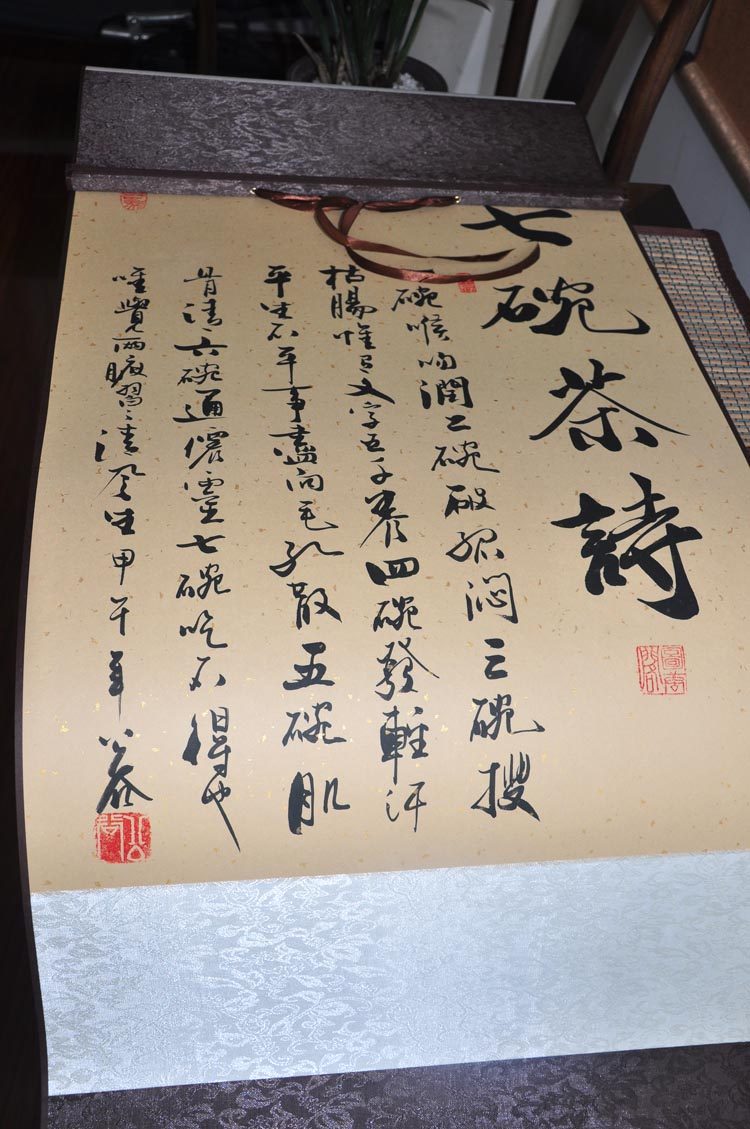 七碗茶詩
一碗喉吻潤二碗破孤悶三碗搜
枯腸惟有文字五千卷四碗發輕汗
平生不平事盡向毛孔散五碗肌
骨清六碗通僊靈七碗吃不得也
唯覺兩腋習〻清風生甲午年